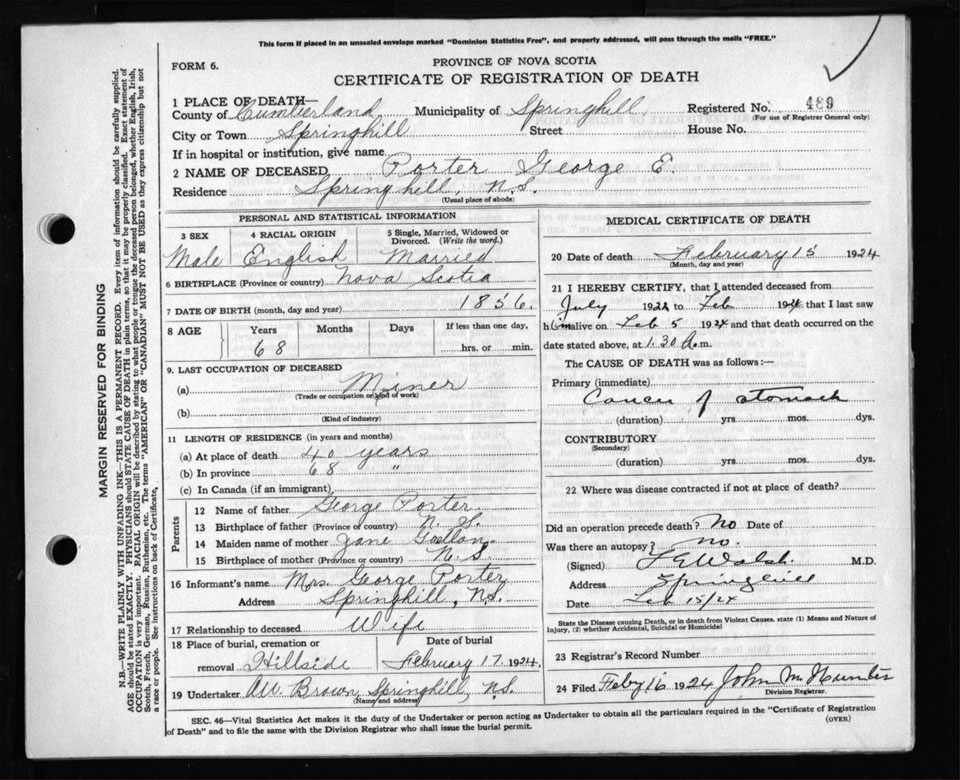 This form if placed in an unsealed envelope marked "Dominion Statistics Free", and properly addressed, will pass through the mails "FREE."
FORM 6.
PROVINCE OF NOVA SCOTIA
CERTIFICATE OF REGISTRATION OF DEATH
1 PLACE OF DEATH—
County of Cumberland Municipality of Springhill Registered No. 489
(For use of Registrar General only)
City or Town Springhill Street House No.
If in hospital or institution, give name
2 NAME OF DECEASED Porter George E.
Residence Springhill, N.S.
(Usual place of abode)
PERSONAL AND STATISTICAL INFORMATION
3 SEX 4 RACIAL ORIGIN 5 Single, Married, Widowed or Divorced. (Write the word.)
Male English Married
6 BIRTHPLACE (Province or country) Nova Scotia
7 DATE OF BIRTH (month, day and year) 1856.
8 AGE Years Months Days If less than one day,
68 hrs. or min.
9. LAST OCCUPATION OF DECEASED
(a) Miner
(Trade or occupation or kind of work)
(b)
(Kind of industry)
11 LENGTH OF RESIDENCE (in years and months)
(a) At place of death 40 years
(b) In province 68 "
(c) In Canada (if an immigrant)
Parents
12 Name of father George Porter
13 Birthplace of father (Province or country) N. S.
14 Maiden name of mother Jane
15 Birthplace of mother (Province or country) N. S
16 Informant's name Mrs. George Porter
Address Springhill, N.S.
17 Relationship to deceased Wife
18 Place of burial, cremation or removal Hillside
Date of burial February 17 1924.
19 Undertaker AW. Brown, Springhill, N.S.
(Name and address)
MEDICAL CERTIFICATE OF DEATH
20 Date of death February 15 1924
(Month, day and year)
21 I HEREBY CERTIFY, that I attended deceased from
July 192 to Feb 1924 that I last saw
him alive on Feb 5 1924 and that death occurred on the
date stated above, at 1.30 A.m.
The CAUSE OF DEATH was as follows:—
Primary (immediate)
Cancer of stomach
(duration) yrs. mos. dys.
CONTRIBUTORY
(Secondary)
(duration) yrs. mos. dys.
22 Where was disease contracted if not at place of death?
Did an operation precede death? No Date of
Was there an autopsy? no.
(Signed) Walsh. M.D.
Address Springhill
Date Feb 15/24
State the Disease causing Death, or in death from Violent Causes, state (1) Means and Nature of
Injury, (2) whether Accidental, Suicidal or Homicidal
23 Registrar's Record Number
24 Filed Feby 16 1924 John M Hunter
Division Registrar.
SEC. 46—Vital Statistics Act makes it the duty of the Undertaker or person acting as Undertaker to obtain all the particulars required in the "Certificate of Registration
of Death" and to file the same with the Division Registrar who shall issue the burial permit.
(OVER)
MARGIN RESERVED FOR BINDING
N.B.—WRITE PLAINLY WITH UNFADING INK—THIS IS A PERMANENT RECORD. Every item of information should be carefully supplied.
AGE should be stated EXACTLY. PHYSICIANS should STATE CAUSE OF DEATH in plain terms, so that it may be properly classified. Exact statement of
OCCUPATION is very important. RACIAL ORIGIN will be described by stating to what people or tongue the deceased person belonged, whether English, Irish,
Scotch, French, German, Russian, Ruthenian, etc. The terms "AMERICAN" or "CANADIAN" MUST NOT BE USED as they express citizenship but not
a race or people. See instructions on back of Certificate.